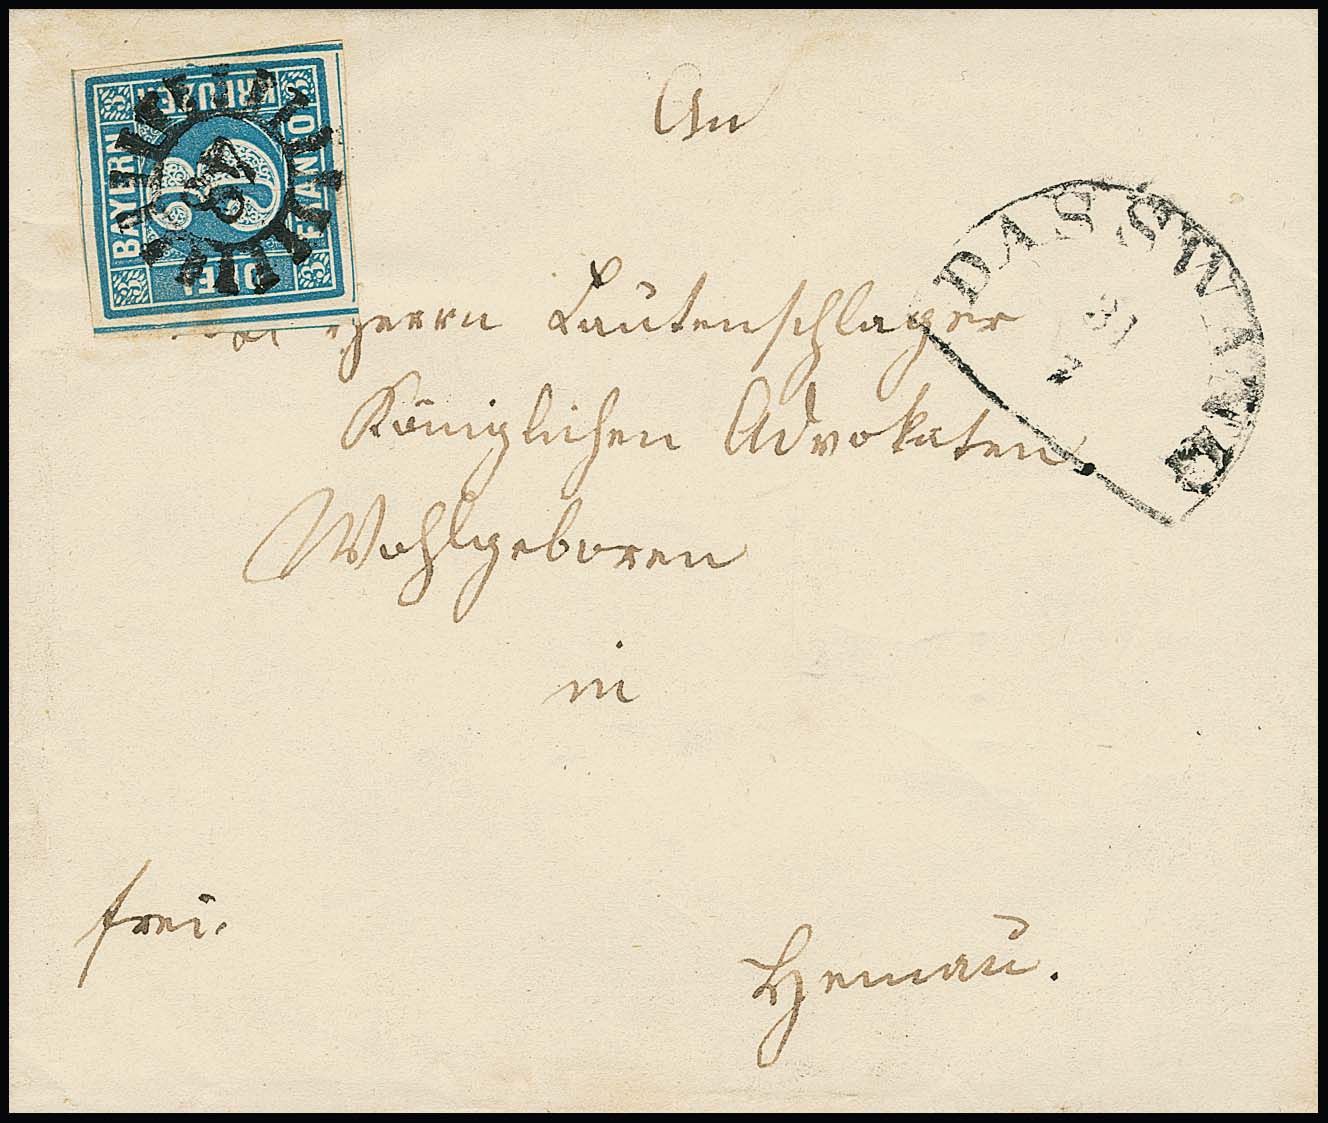 BAYERN
KREUZER
FRANCO
DREI
3
An
Herrn Lautenschlager
Königlichen Advokaten
Wohlgeboren
in
frei.
Hemau.
DASSWANG